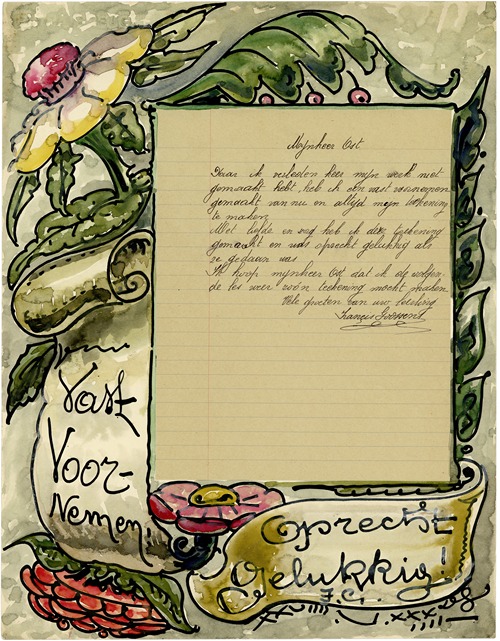 Mijnheer Ost
Daar ik verleden keer mijn werk niet
gemaakt hebt heb ik een vast voornemen
gemaakt van nu en altijd mijn tekening
te maken
Met liefde en vreug heb ik deze tekening
gemaakt en was oprecht gelukkig als
ze gedaan was
Ik hoop mijnheer Ost dat ik de volgen-
de les weer zo'n tekening mocht maken.
Vele groeten van uw leerling
Francis
Vast
Voor-
nemen!
Oprecht
Gelukkig!